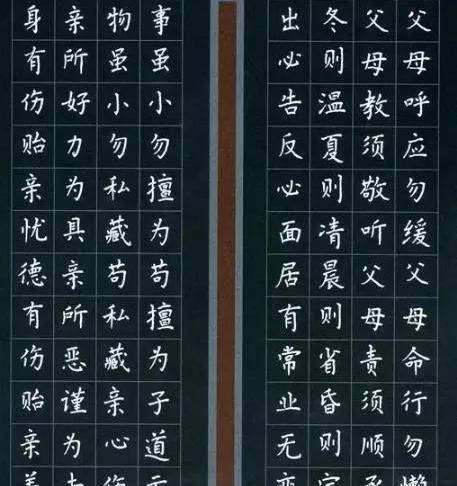 父母呼应勿缓父母命行勿懒
父母教须敬听父母责须顺承
冬则温夏则凊晨则省昏则定
出必告反必面居有常业无变
事虽小勿擅为苟擅为子道亏
物虽小勿私藏苟私藏亲心伤
亲所好力为具亲所恶谨为去
身有伤贻亲忧德有伤贻亲羞